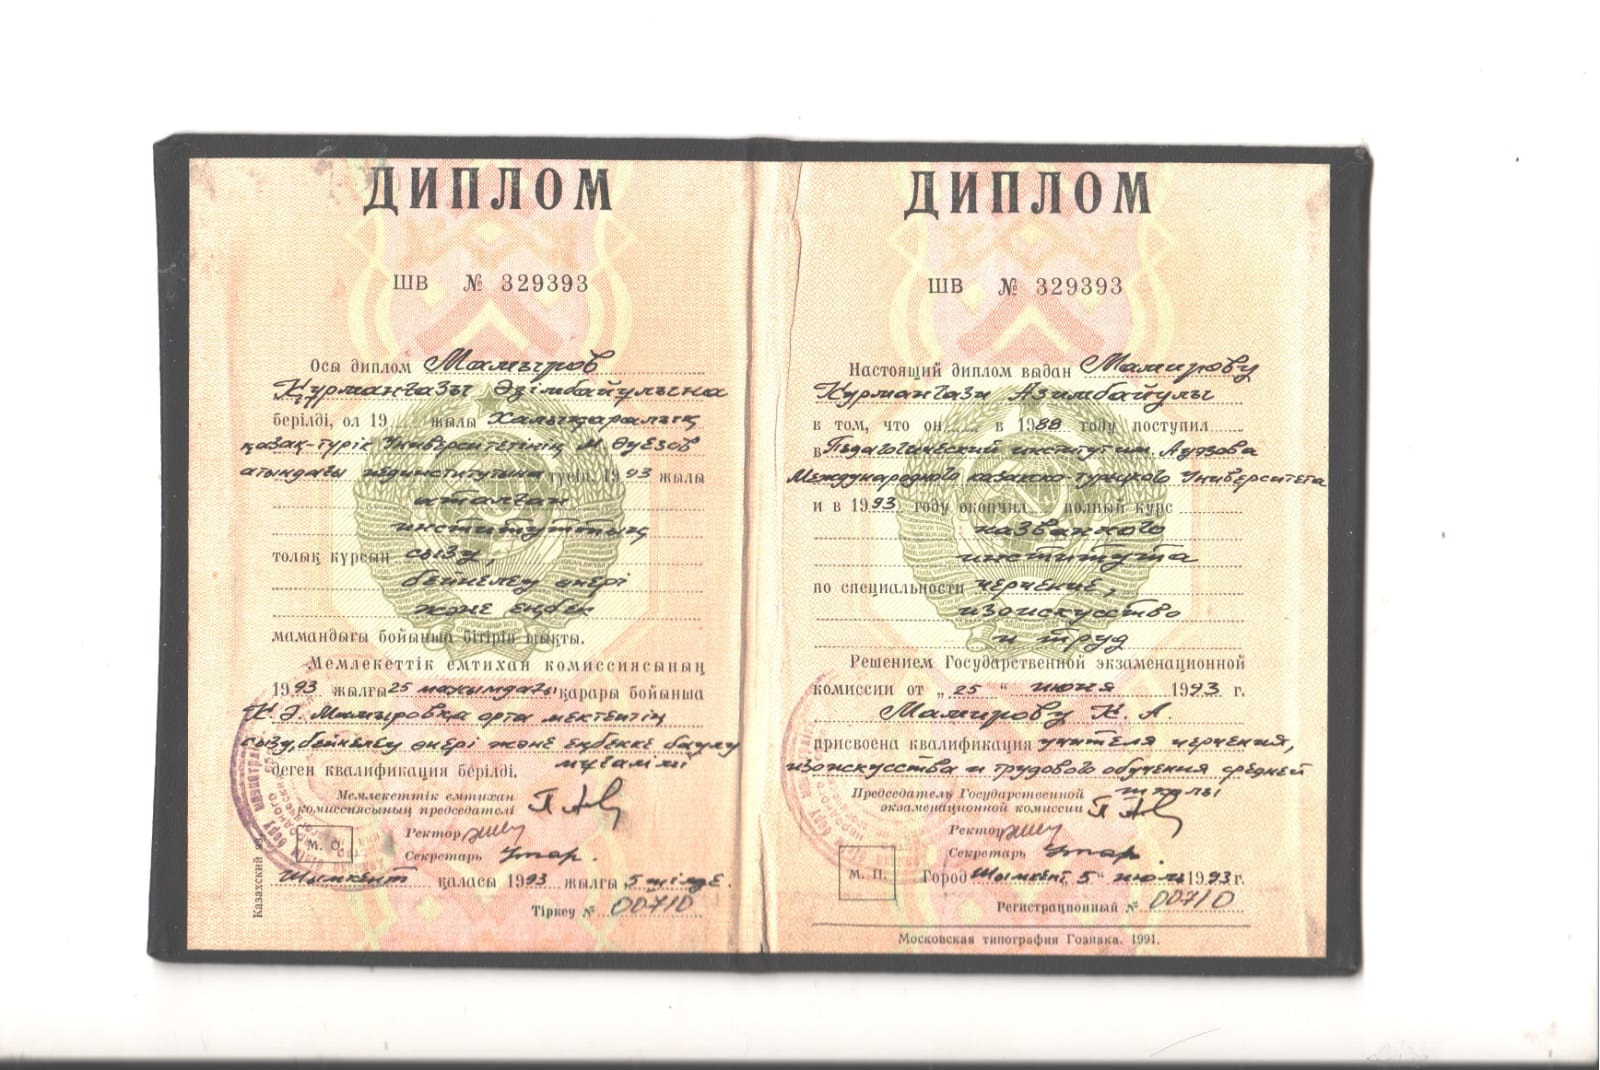 ДИПЛОМ
ШВ № 329393
Осы диплом Мамыров
Құрманғазы Әзімбайұлына
берілді, ол 19 жылы Халықаралық
қазақ-түрік Университетінің М. Әуезов
атындағы пединститутына түсіп, 1993 жылы
аталған
институттың
толық курсын сызу,
бейнелеу өнері
және еңбек
мамандығы бойынша бітіріп шықты.
Мемлекеттік емтихан комиссиясының
1993 жылғы 25 маусымдағы қарары бойынша
Қ. Ә. Мамыровқа орта мектептің
сызу, бейнелеу өнері және еңбекке баулу
мұғалімі
деген квалификация берілді.
Мемлекеттік емтихан
комиссиясының председателі
Ректор
Секретарь
М. О.
Шымкент қаласы 1993 жылғы 5 шілде.
Тіркеу № 00710
Казахский яз.
ДИПЛОМ
ШВ № 329393
Настоящий диплом выдан Мамирову
Курмангази Азимбайулы
в том, что он в 1988 году поступил
в Педагогический институт им. Ауэзова
Международного казахско-турецкого Университета
и в 1993 году окончил полный курс
названного
института
по специальности черчение,
изоискусство
и труд
Решением Государственной экзаменационной
комиссии от „25“ июня 1993 г.
Мамирову К. А.
присвоена квалификация учителя черчения,
изоискусства и трудового обучения средней
школы
Председатель Государственной
экзаменационной комиссии
Ректор
Секретарь
М. П.
Город Шымкент, 5“ июль 1993 г.
Регистрационный № 00710
Московская типография Гознака. 1991.